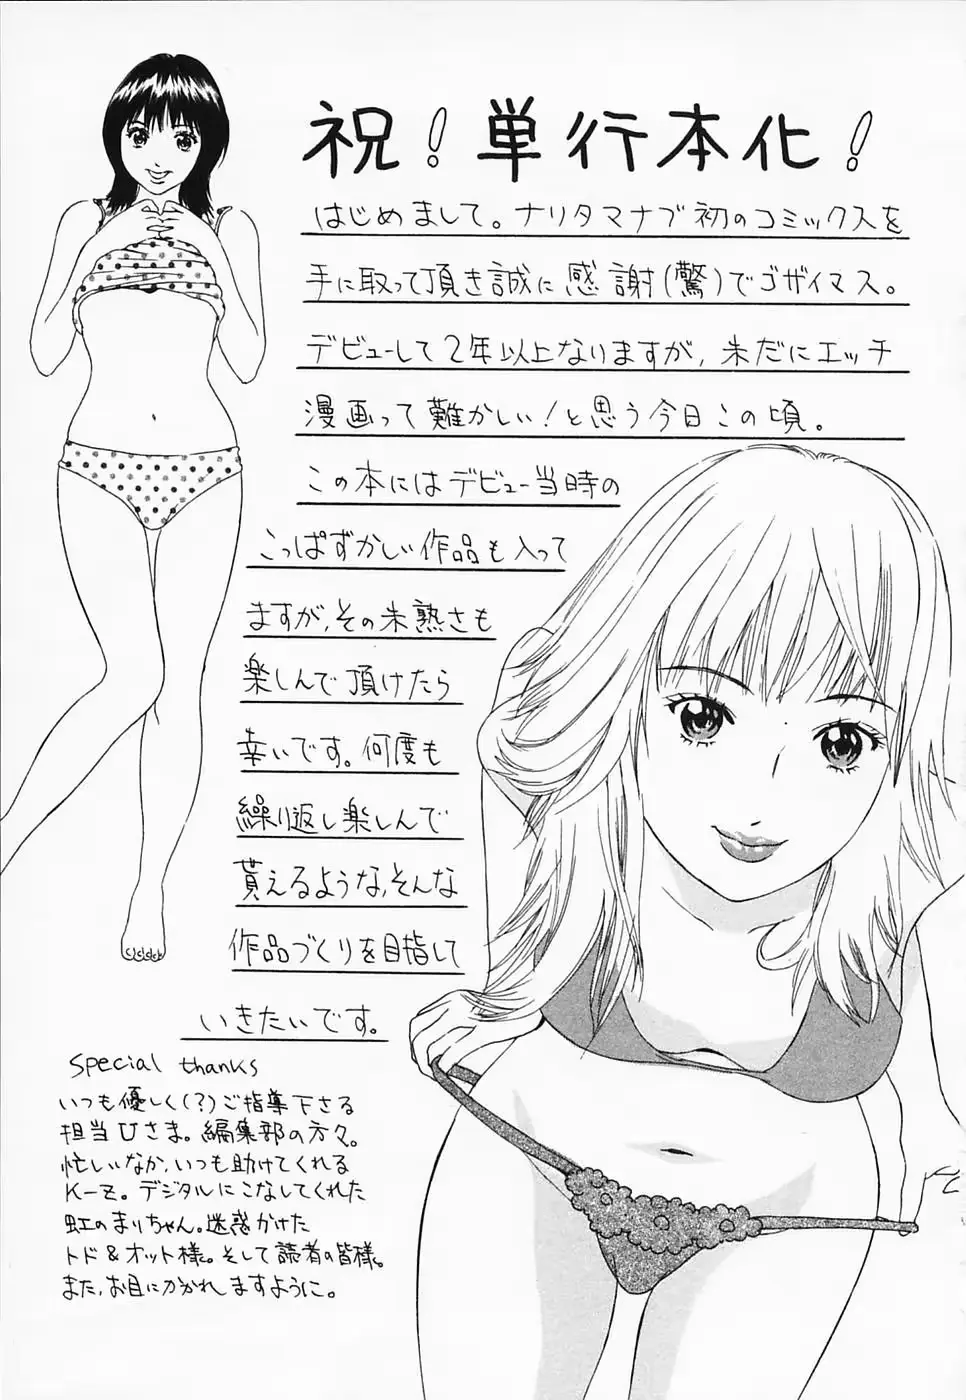 祝！単行本化！
はじめまして。ナリタマナブ初のコミックスを
手に取って頂き誠に感謝(驚)でゴザイマス。
デビューして2年以上なりますが、未だにエッチ
漫画って難かしい！と思う今日この頃。
この本にはデビュー当時の
こっぱずかしい作品も入って
ますが、その未熟さも
楽しんで頂けたら
幸いです。何度も
繰り返し楽しんで
貰えるような、そんな
作品づくりを目指して
いきたいです。
special thanks
いつも優しく(?)ご指導下さる
担当Uさま。編集部の方々。
忙しいなか、いつも助けてくれる
K-Z。デジタルにこなしてくれた
虹のまりちゃん。迷惑かけた
トド&オット様。そして読者の皆様。
また、お目にかかれますように。